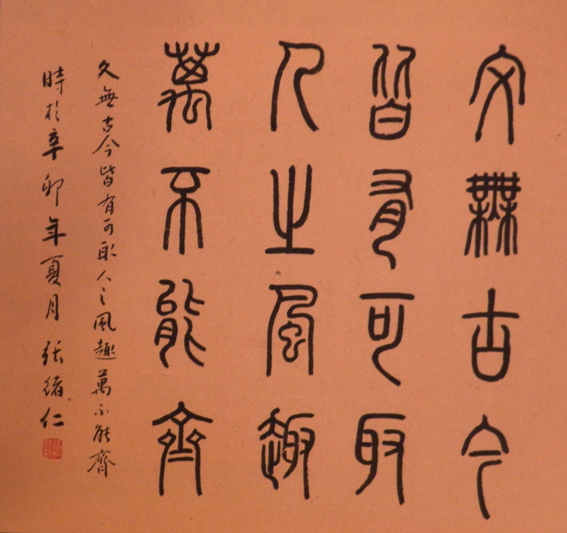 文無古今
皆有可取
人之風趣
萬不能齊
文無古今皆有可取人之風趣萬不能齊
時於辛卯年夏月張緒仁